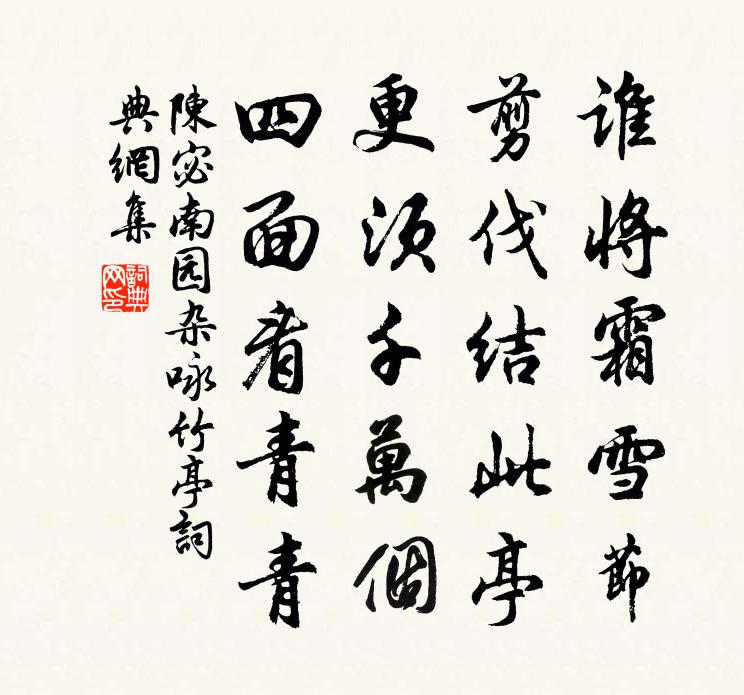 谁將霜雪節
剪伐结此亭
更须千萬個
四面看青青
陳宓南园杂咏竹亭詞
典網集
詞典
网印